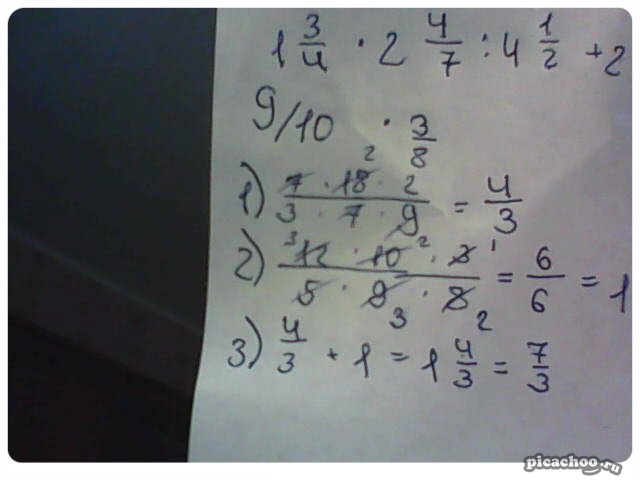 1 3/4 · 2 4/7 : 4 1/2 + 2
9/10 · 3/8
1) 7 · 18 2 · 2 / 3 · 7 · 9 = 4/3
2) 3 12 · 10 2 · 3 1 / 5 · 9 3 · 8 2 = 6/6 = 1
3) 4/3 + 1 = 1 4/3 = 7/3
picachoo.ru